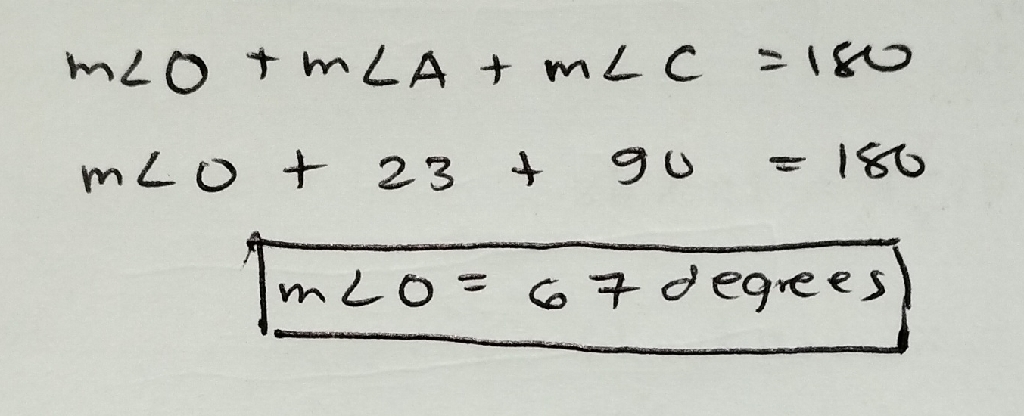 m∠O + m∠A + m∠C = 180
m∠O + 23 + 90 = 180
m∠O = 67 degrees